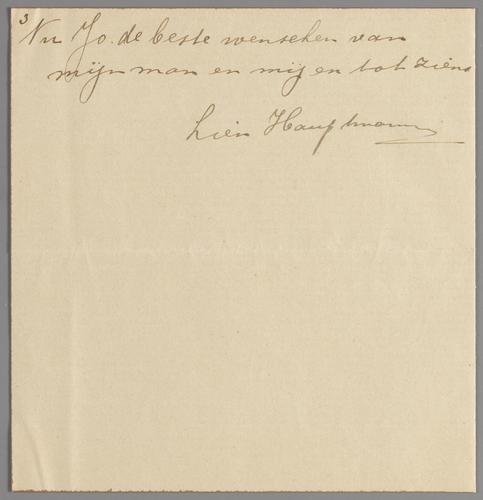 3
Nu Jo. de beste wenschen van
mijn man en mij en tot ziens
Lien Hauptmann